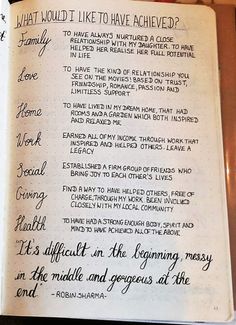 WHAT WOULD I LIKE TO HAVE ACHIEVED?
Family TO HAVE ALWAYS NURTURED A CLOSE
RELATIONSHIP WITH MY DAUGHTER. TO HAVE
HELPED HER REALISE HER FULL POTENTIAL
IN LIFE
Love TO HAVE THE KIND OF RELATIONSHIP YOU
SEE ON THE MOVIES! BASED ON TRUST,
FRIENDSHIP, ROMANCE, PASSION AND
LIMITLESS SUPPORT
Home TO HAVE LIVED IN MY DREAM HOME, THAT HAD
ROOMS AND A GARDEN WHICH BOTH INSPIRED
AND RELAXED ME
Work EARNED ALL OF MY INCOME THROUGH WORK THAT
INSPIRED AND HELPED OTHERS. LEAVE A
LEGACY
Social ESTABLISHED A FIRM GROUP OF FRIENDS WHO
BRING JOY TO EACH OTHER'S LIVES
Giving FIND A WAY TO HAVE HELPED OTHERS, FREE OF
CHARGE, THROUGH MY WORK. BEEN INVOLVED
CLOSELY WITH MY LOCAL COMMUNITY
Health TO HAVE HAD A STRONG ENOUGH BODY, SPIRIT AND
MIND TO HAVE ACHIEVED ALL OF THE ABOVE
"It's difficult in the beginning, messy
in the middle and gorgeous at the
end" - ROBIN SHARMA -